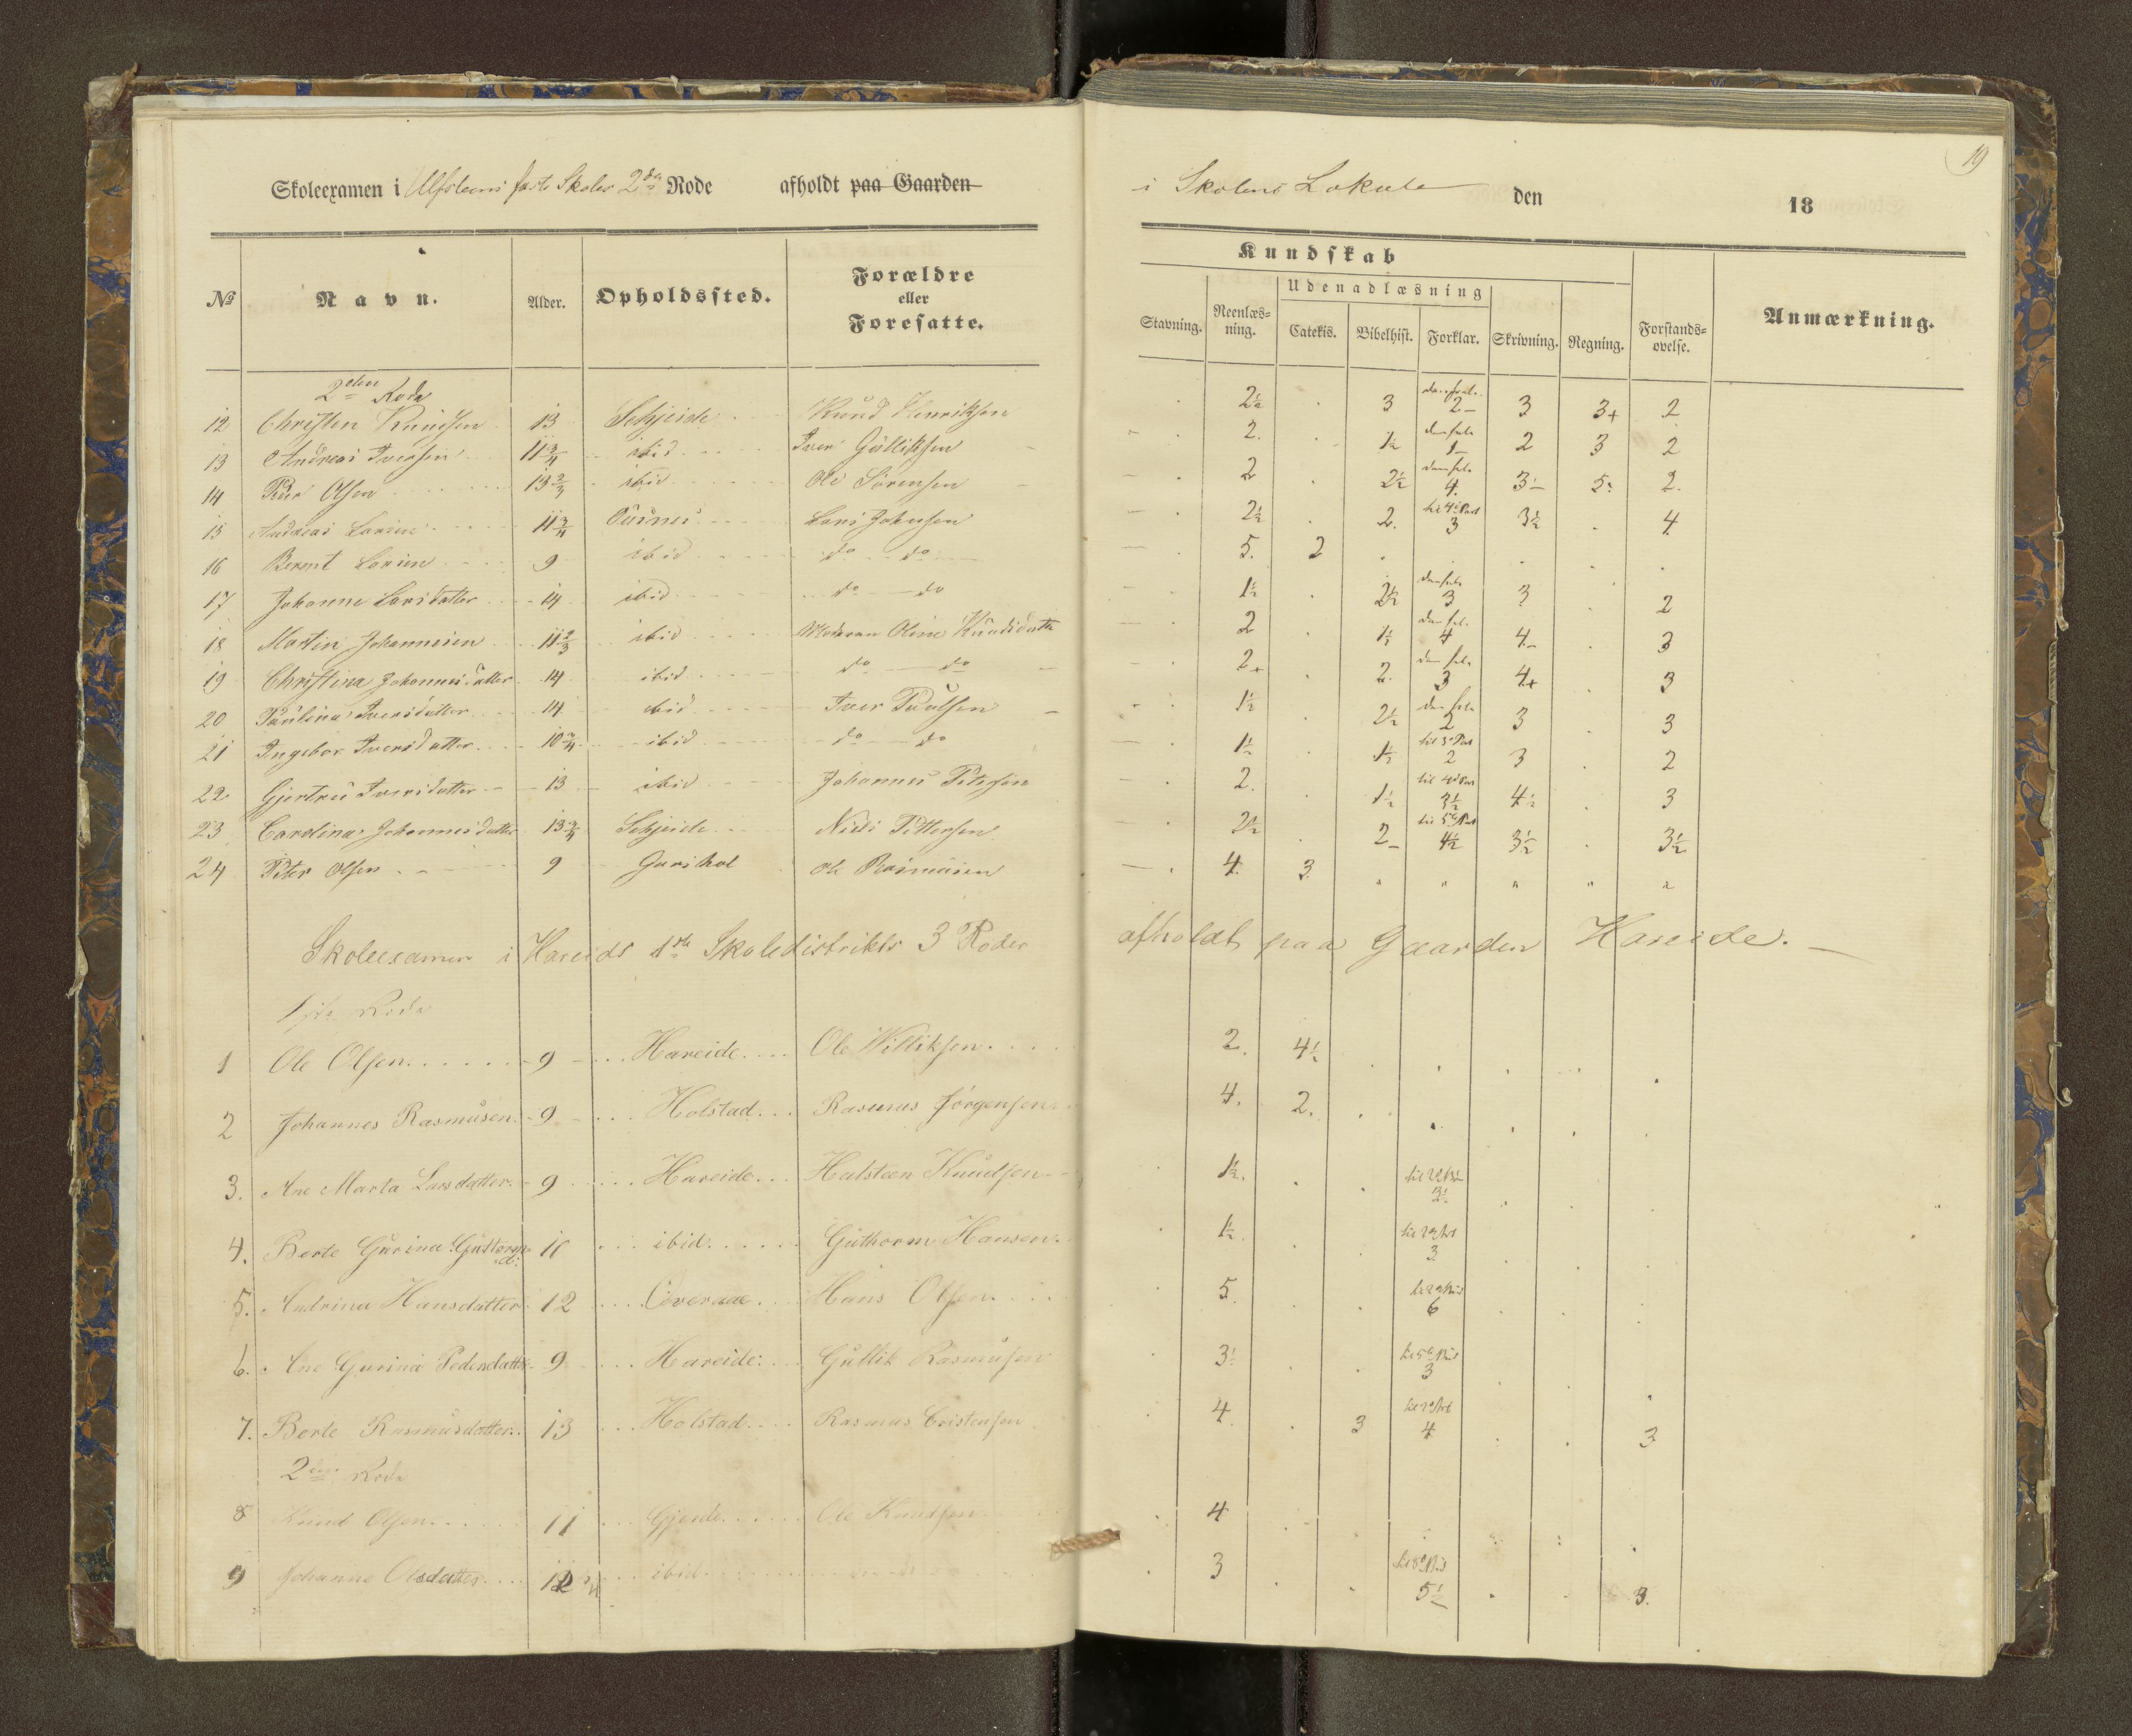 19
Skoleexamen i Ulfsteens faste Skoles 2den Rode afholdt paa Gaarden i Skolens Lokale den 18
Kundskab
№ Navn. Alder. Opholdssted. Forældre eller Foresatte. Stavning. Reenlæs-ning. Udenadlæsning Catekis. Bibelhist. Forklar. Skrivning. Regning. Forstands-øvelse. Anmærkning.
2den Rode
12 Christen Knudsen 13 Schjeide Knud Henriksen 2½ 3 2- 3 3+ 2
13 Andreas Iversen 11¾ ibid Iver Gulliksen 2. 1½ 1- 2 3 2
14 Peer Olsen 13 ibid Ole Sørensen 2 2½ 4. 3- 5 2.
15 Andreas Larsen 11¾ Lars Johnsen 2½ 2. 3 3½ 4.
16 Bernt Larsen 9 ibid do do 5. 2
17 Johanne Larsdatter 14 ibid do do 1½ 2½ 3 3 2
18 Martin Johannesen 11⅔ ibid Moderen Oline Knudsdatter 2 1½ 4 4- 3
19 Christina Johannesdatter 14 ibid do do 2+ 2. 3 4+ 3
20 Paulina Iversdatter 14 ibid Iver Paulsen 1½ 2½ 2 3 3
21 Ingebor Iversdatter 10¾ ibid do do 1½ 1½ 2 3 2
22 Gjertru Iversdatter 13 ibid Johannes Petersen 2. 1½ 3½ 4½ 3
23 Carolina Johannesdatter 13¾ Schjeide Niels Pettersen 2½ 2- 4½ 3½ 3½
24 Peter Olsen 9 Gurskol Ole Rasmusen 4. 3 " " " " "
Skoleexamen i Hareids 1ste Skoledistrikts 3 Roder afholdt paa Gaarden Hareide.
1ste Rode
1 Ole Olsen 9 Hareide Ole Williksen 2. 4½
2 Johannes Rasmusen 9 Holstad Rasmus Jørgensen 4. 2.
3. Ane Marta Larsdatter 9 Hareide Halsteen Knudsen 1½. 3½
4. Berte Gurina Guttorms d: 11 ibid. Guthorm Hansen. 1½. 3
5. Andrina Hansdatter 12 Overaae Hans Olsen 5. 6
6. Ane Gurina Pedersdatter 9 Hareide Gullik Rasmusen 3½ 3
7. Berte Rasmusdatter 13 Holstad Rasmus Cristensen 4. 3 4 3
2den Rode
8 Knud Olsen 11 Gjerde Ole Knudsen 4
9 Johanne Olsdatter 12 ibid. 3 5½ 3.